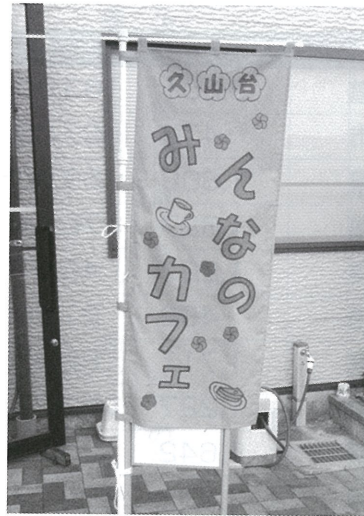 久山台
みんなの
カフェ